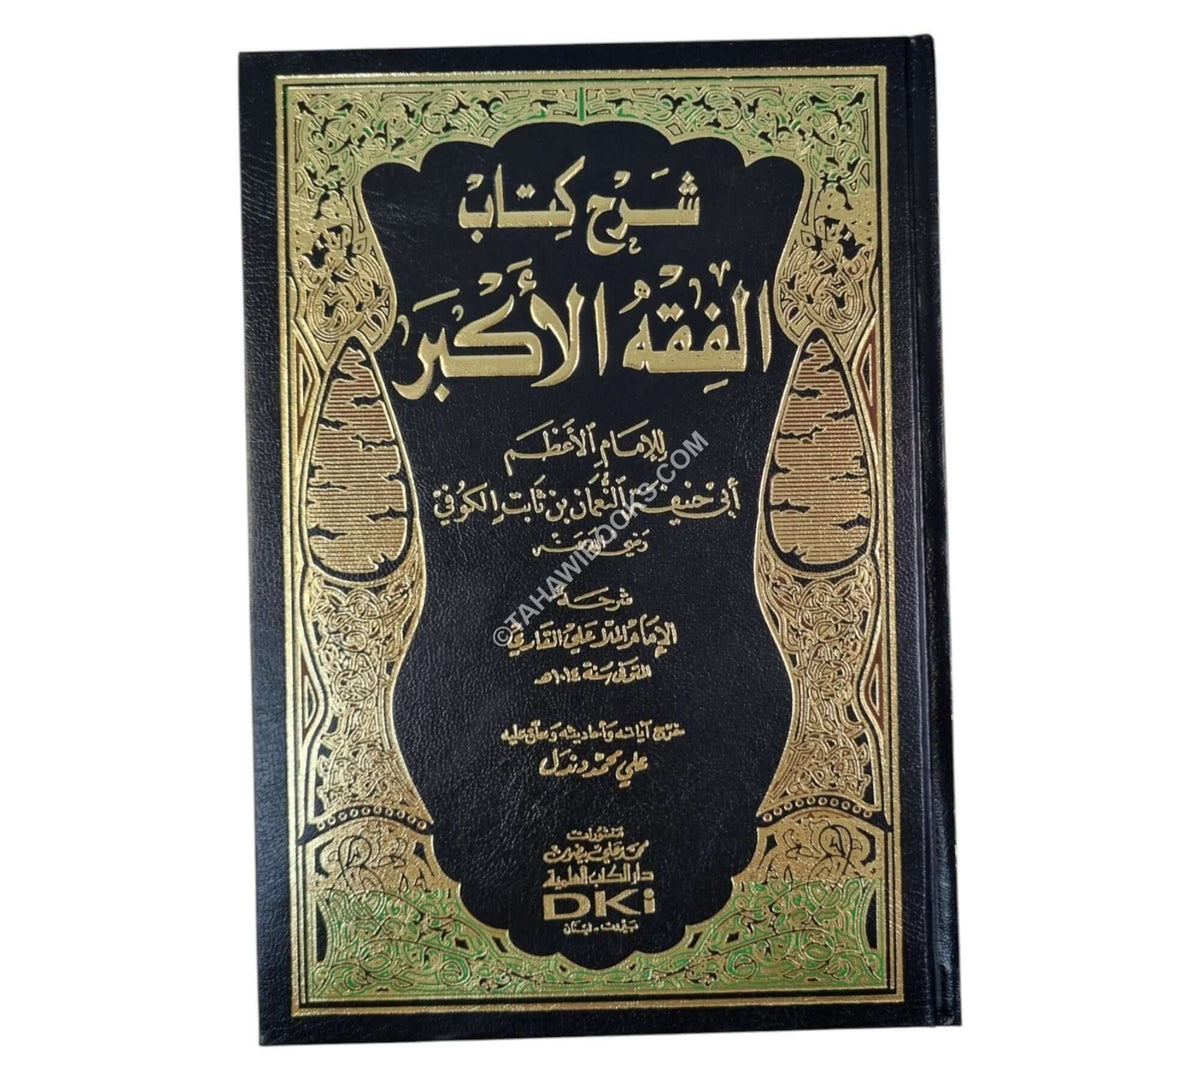 شَرْح كِتَابْ
الفِقْهُ الأَكْبَرَ
لِلإمَامِ الأَعْظَم
أبي حنيفة النُّعْمَان بن ثابت الكوفي
رضي الله عنه
شرحه
الإمام الملا علي القاري
المتوفى سنة ١٠١٤هـ
خرّج آياته وأحاديثه وعلّق عليه
علي محمد دندل
منشورات
محمد علي بيضون
دار الكتب العلمية
DKi
بيروت - لبنان
©TAHAWIBOOKS.COM